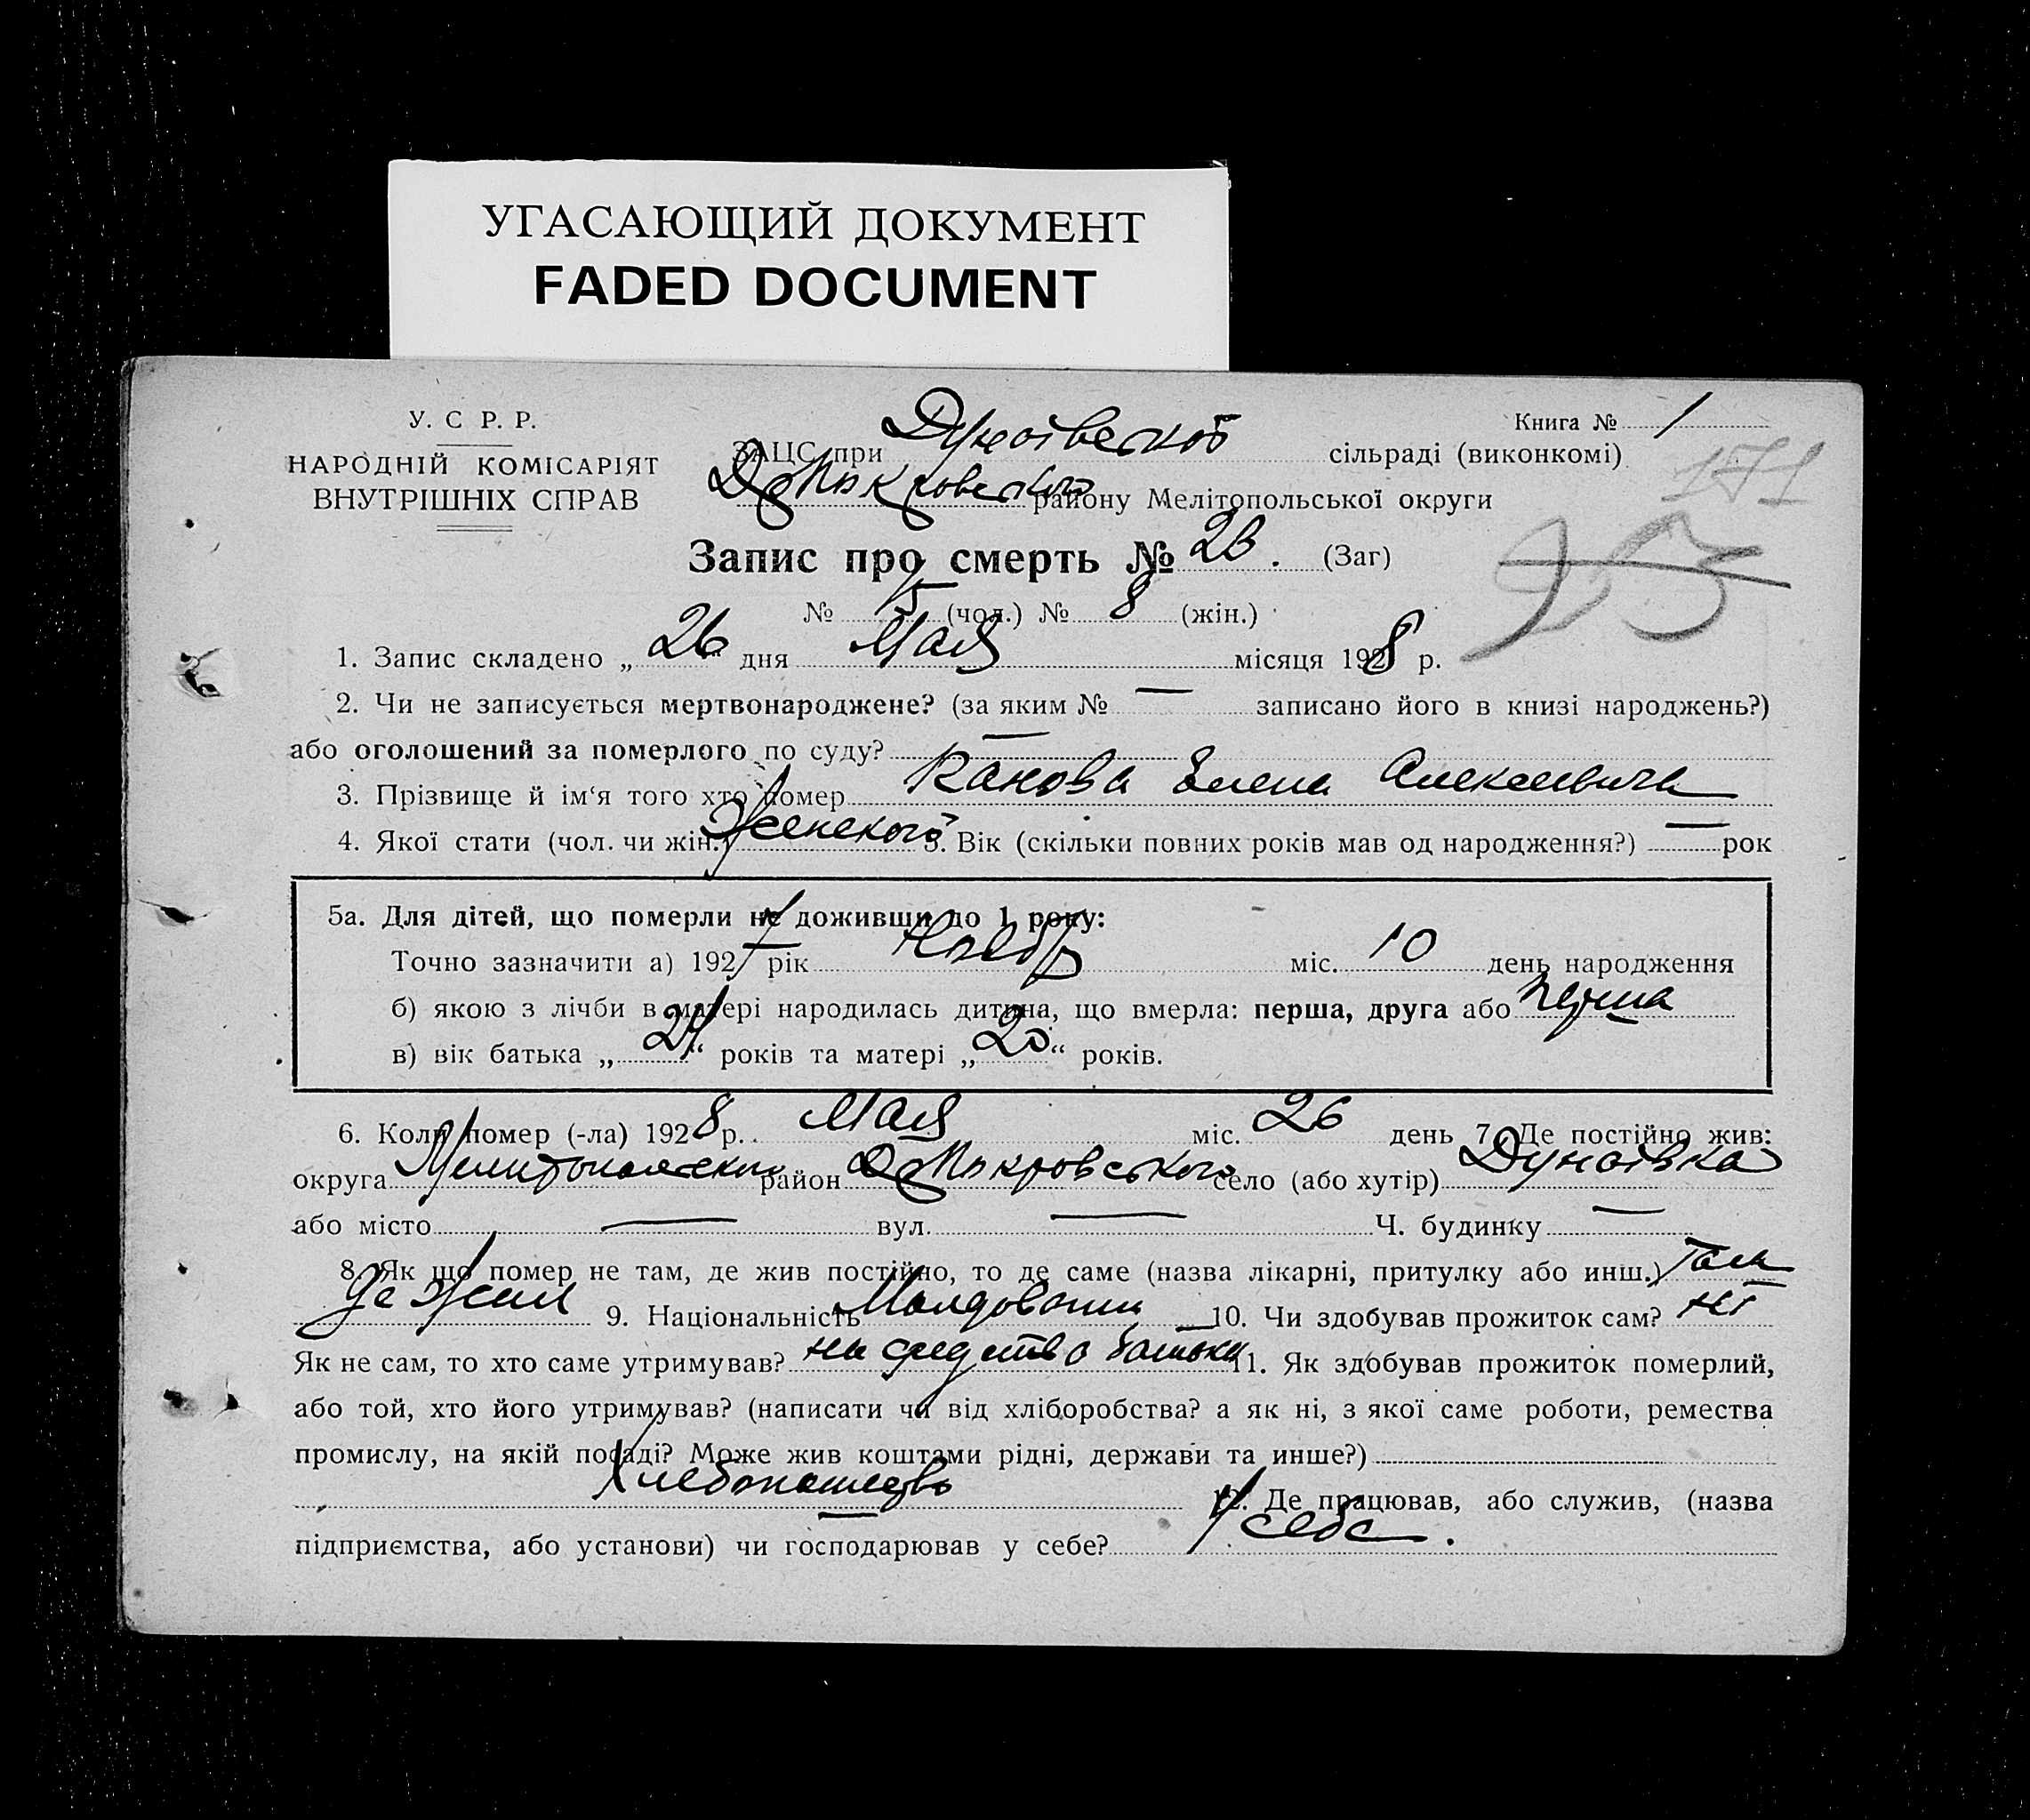 УГАСАЮЩИЙ ДОКУМЕНТ
FADED DOCUMENT
У. С Р. Р.
НАРОДНІЙ КОМІСАРІЯТ
ВНУТРІШНІХ СПРАВ
Книга № 1
ЗАЦС при Дунаівской сільраді (виконкомі)
171
Покровского району Мелітопольської округи
Запис про смерть № 23. (Заг)
№ 15 (чол.) № 8 (жін.)
253
1. Запис складено „26" дня Мая місяця 1928 р.
2. Чи не записується мертвонароджене? (за яким № — записано його в книзі народжень?)
або оголошений за померлого по суду? —
3. Прізвище й ім'я того хто помер Канова Елена Алексеевича
4. Якої стати (чол. чи жін.) Женского 5. Вік (скільки повних років мав од народження?) — рок
5а. Для дітей, що померли не доживши до 1 року:
Точно зазначити а) 1927 рік Ноябр міс. 10 день народження
б) якою з лічби в матері народилась дитина, що вмерла: перша, друга або перша
в) вік батька „21" років та матері „20" років.
6. Коли помер (-ла) 1928 р. Мая міс. 26 день 7. Де постійно жив:
округа Мелитопольского район Покровського село (або хутір) Дунаівка
або місто — вул. — Ч. будинку —
8. Як що помер не там, де жив постійно, то де саме (назва лікарні, притулку або инш.) Там
де жил 9. Національність Молдован 10. Чи здобував прожиток сам? ні
Як не сам, то хто саме утримував? на средство батька 11. Як здобував прожиток померлий,
або той, хто його утримував? (написати чи від хліборобства? а як ні, з якої саме роботи, ремества
промислу, на якій посаді? Може жив коштами рідні, держави та инше?)
Хлебопашество 12. Де працював, або служив, (назва
підприємства, або установи) чи господарював у себе? У себе.